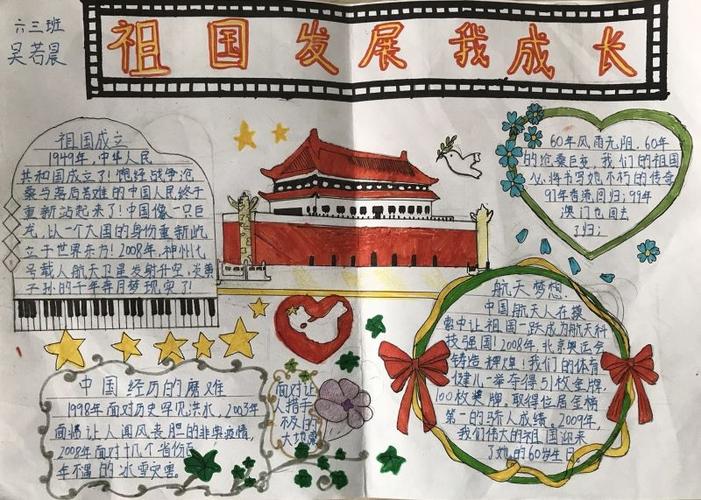 六三班
吴若晨
祖国发展我成长
祖国成立
1949年,中华人民
共和国成立了!饱经战争沧
桑与落后苦难的中国人民终于
重新站起来了!中国像一只巨
龙,以一个大国的身份重新屹
立于世界东方!2008年,神州七
号载人航天卫星发射升空,炎黄
子孙的千年奔月梦现实了!
60年风雨无阻,60年
的沧桑巨变,我们的祖国
必将书写她不朽的传奇
97年香港回归;99年
澳门也回去
了归;
航天梦想.
中国航天人在摸
索中让祖国一跃成为航天科
技强国!2008年北京奥运会
铸造辉煌!我们的体育
健儿一举夺得51枚金牌,
100枚奖牌,取得位居金牌
第一的骄人成绩。2009年,
我们伟大的祖国迎来
了她的60岁生日
中国经历的磨难
1998年面对历史罕见洪水,2003年
面临让人闻风丧胆的非典疫情,
2008年面对十几个省份百
年不遇的冰雪灾害
面对让
人措手
不及的
大地震